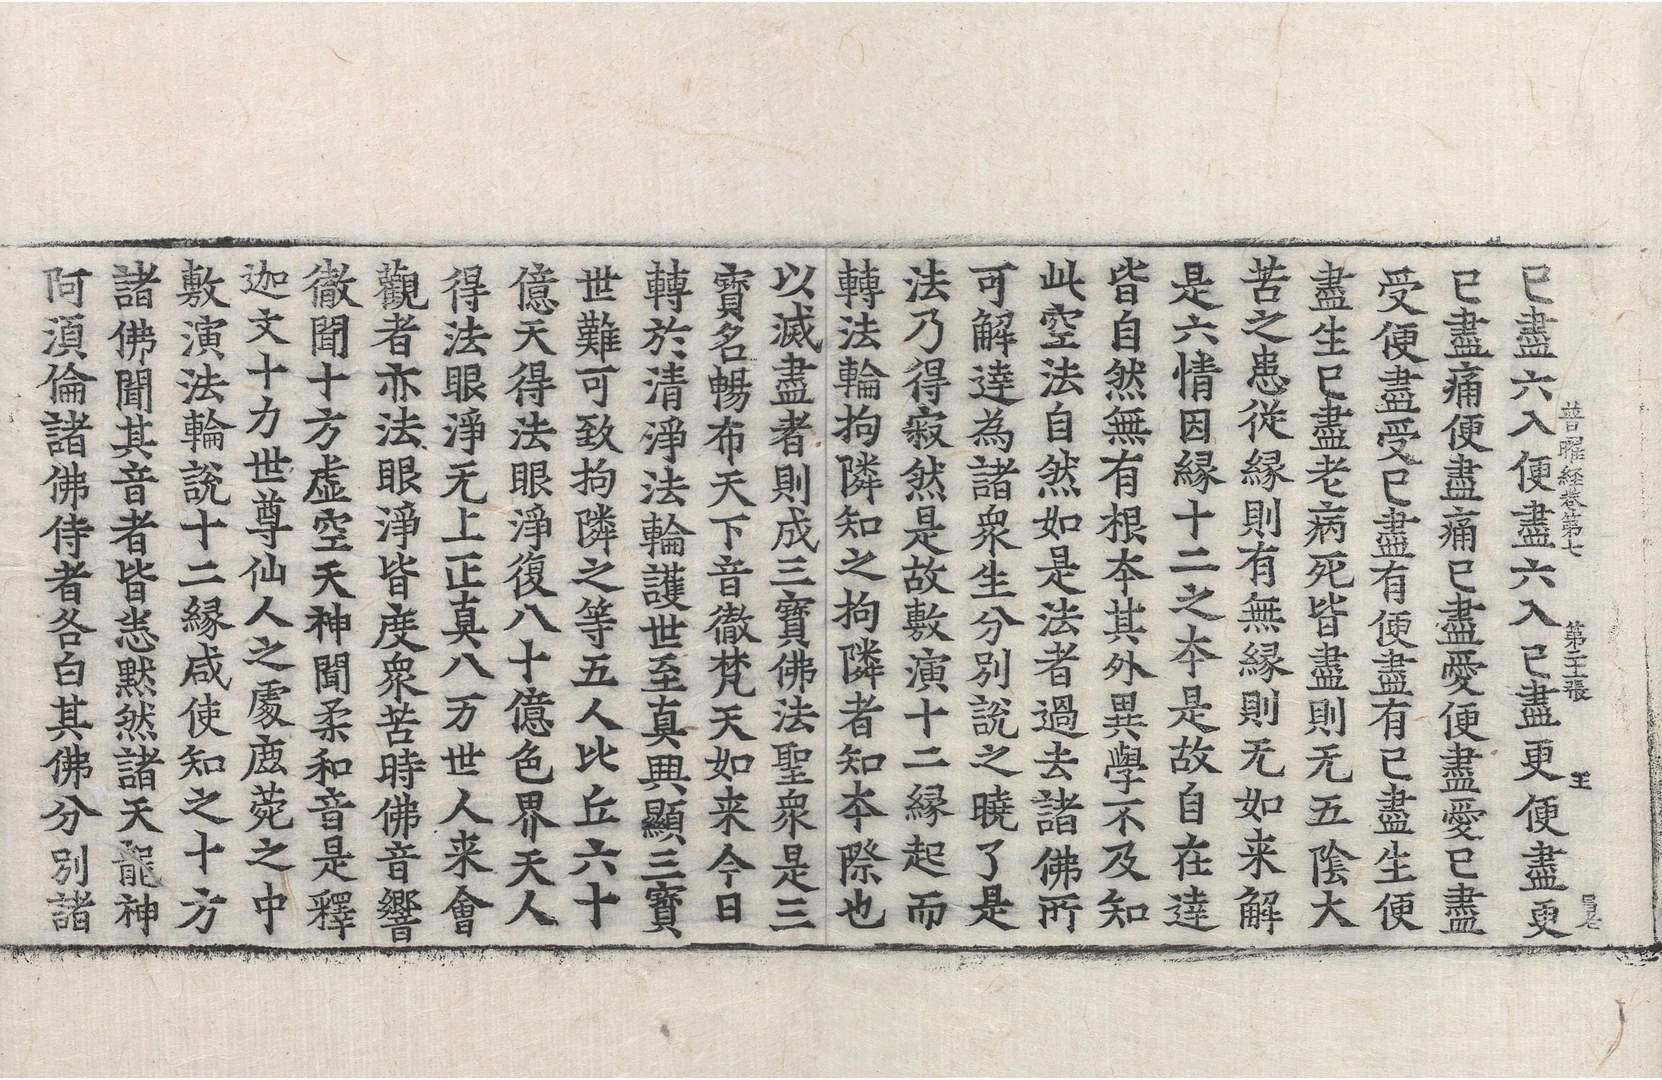 普曜経卷第七　第二十張　王
已盡六入便盡六入已盡更便盡更
已盡痛便盡痛已盡愛便盡愛已盡
受便盡受已盡有便盡有已盡生便
盡生已盡老病死皆盡則无五陰大
苦之患從縁則有無縁則无如来解
是六情因縁十二之本是故自在逹
皆自然無有根本其外異學不及知
此空法自然如是法者過去諸佛所
可解逹為諸衆生分別說之曉了是
法乃得寂然是故敷演十二縁起而
轉法輪拘隣知之拘隣者知本際也
以滅盡者則成三寶佛法聖衆是三
寶名暢布天下音徹梵天如来今日
轉於清淨法輪護世至真興顯三寶
世難可致拘隣之等五人比丘六十
億天得法眼淨復八十億色界天人
得法眼淨无上正真八万世人来會
觀者亦法眼淨皆度衆苦時佛音響
徹聞十方虚空天神聞柔和音是釋
迦文十力世尊仙人之處鹿菀之中
敷演法輪說十二縁咸使知之十方
諸佛聞其音者皆悉默然諸天龍神
阿須倫諸佛侍者各白其佛分別諸